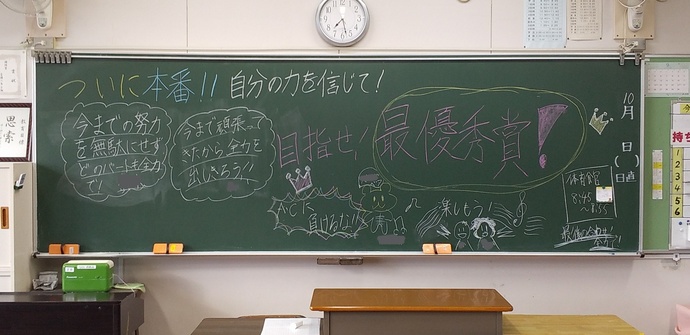 ついに本番!! 自分の力を信じて!
今までの努力
を無駄にせず
どのパートも全力
で!
今まで頑張って
きたから全力を
出しきろう!!
目指せ! 最優秀賞!
ACに
負けるな!!
楽しもう!
10
月
日
( )
日直
体育館
8:45
~8:55
思索